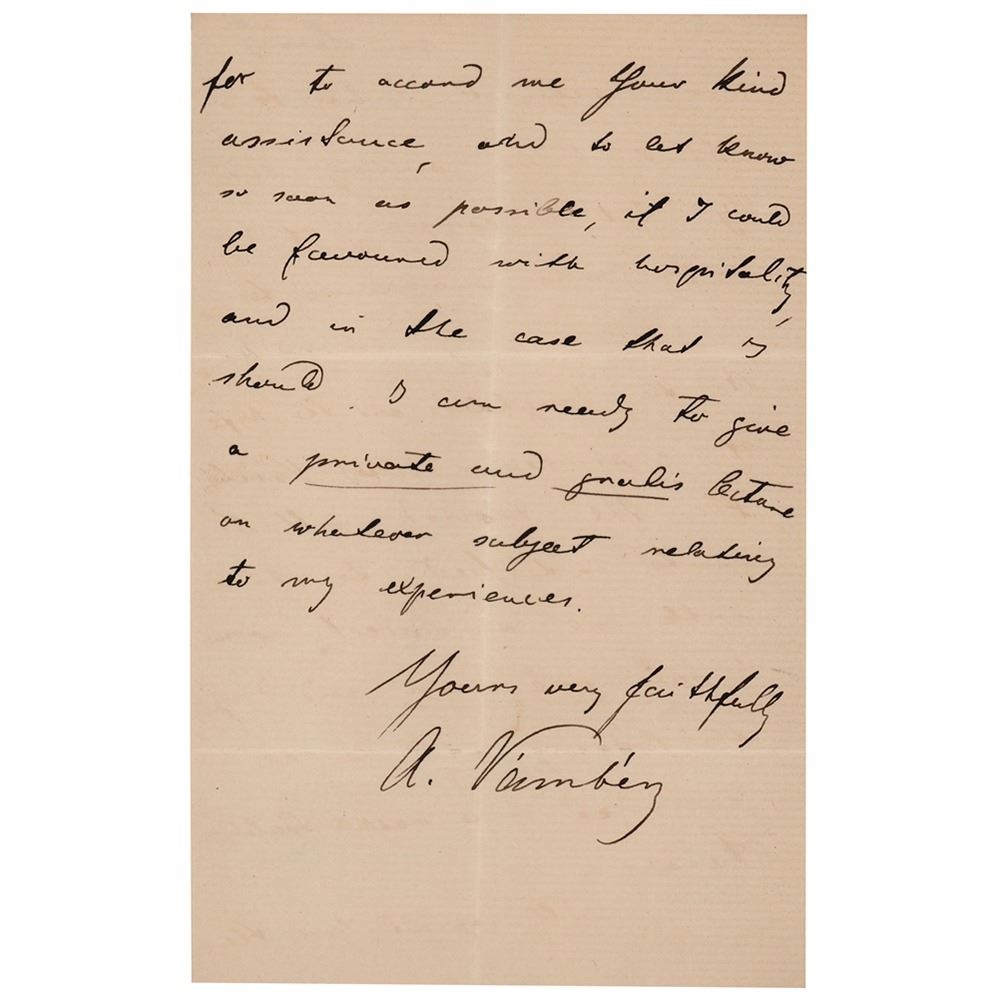 for to accord me Your kind
assistance, and to let know
so soon as possible, if I could
be favoured with hospitality,
and in the case that I
should. I am ready to give
a private and gratis lecture
on whatever subject relating
to my experiences.
Yours very faithfully
A. Vámbéry